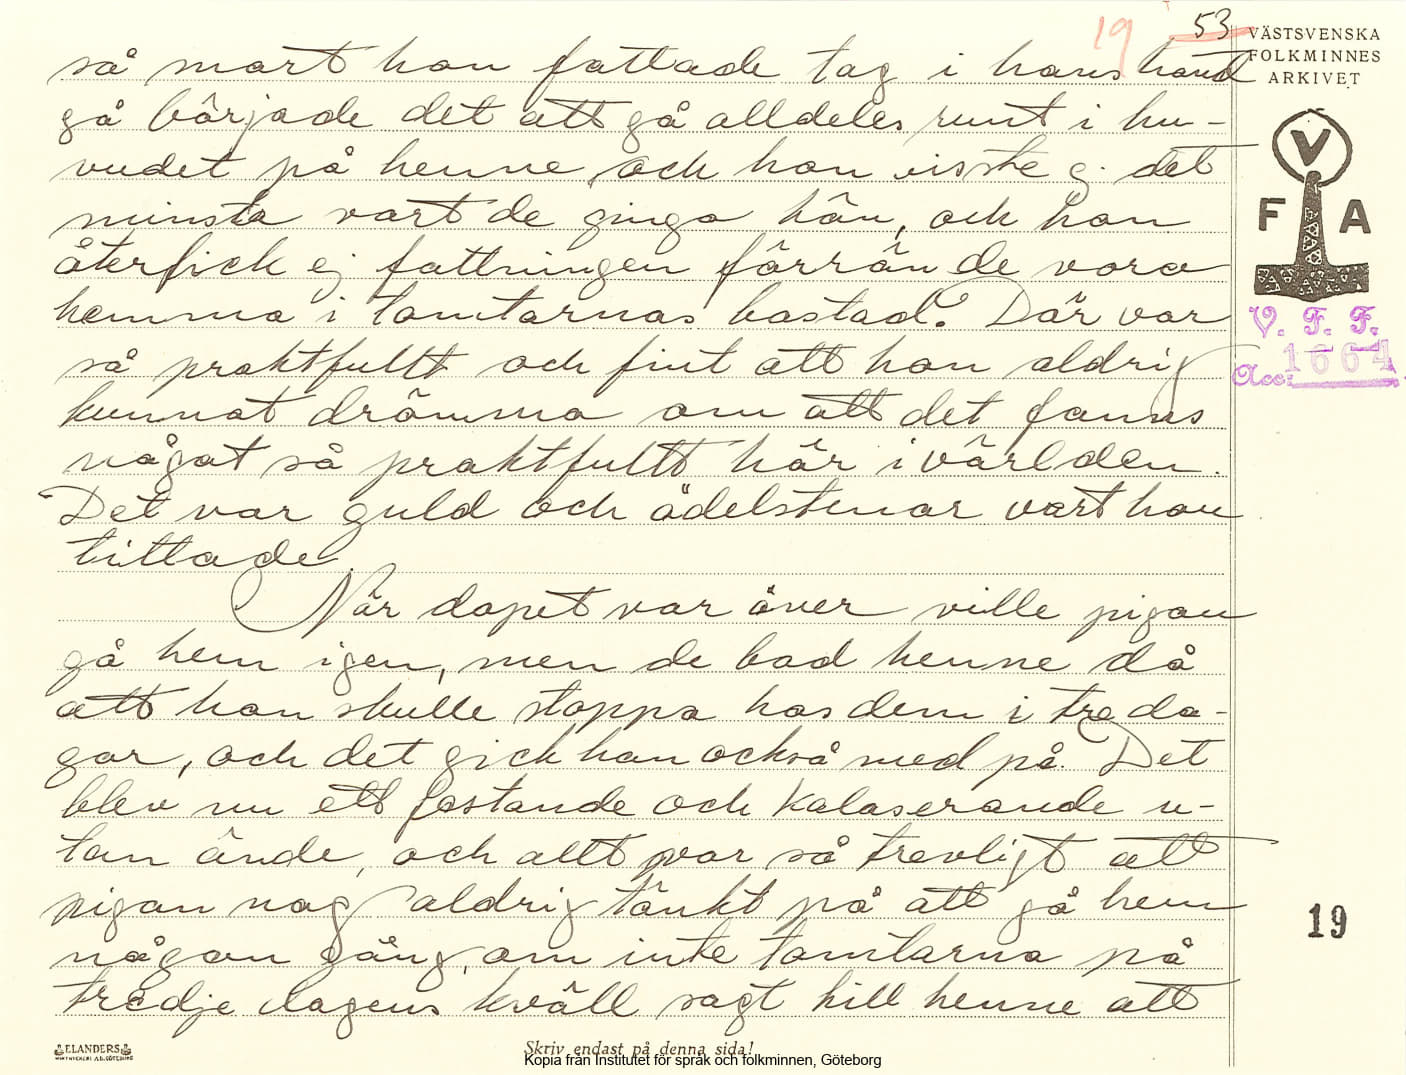 19 53
VÄSTSVENSKA
FOLKMINNES
ARKIVET
V
F A
V. F. F.
Acc: 1664
så snart hon fattade tag i hans hand
gå började det att gå alldeles runt i hu-
vudet på henne, och hon visste ej det
minsta vart de gingo hän, och hon
återfick ej fattningen förrän de voro
hemma i tomtarnas bostad. Där var
så praktfullt och fint att hon aldrig
kunnat drömma om att det fanns
något så praktfullt här i världen.
Det var guld och ädelstenar vart hon
tittade.
När dopet var över ville pigan
gå hem igen, men de bad henne då
att hon skulle stoppa hos dem i tre da-
gar, och det gick hon också med på. Det
blev nu ett festande och kalaserande u-
tan ände, och allt var så trevligt att
pigan nog aldrig tänkt på att gå hem
någon gång, om inte tomtarna på
tredje dagens kväll sagt till henne att
19
ELANDERS
Skriv endast på denna sida!
Kopia från Institutet för språk och folkminnen, Göteborg